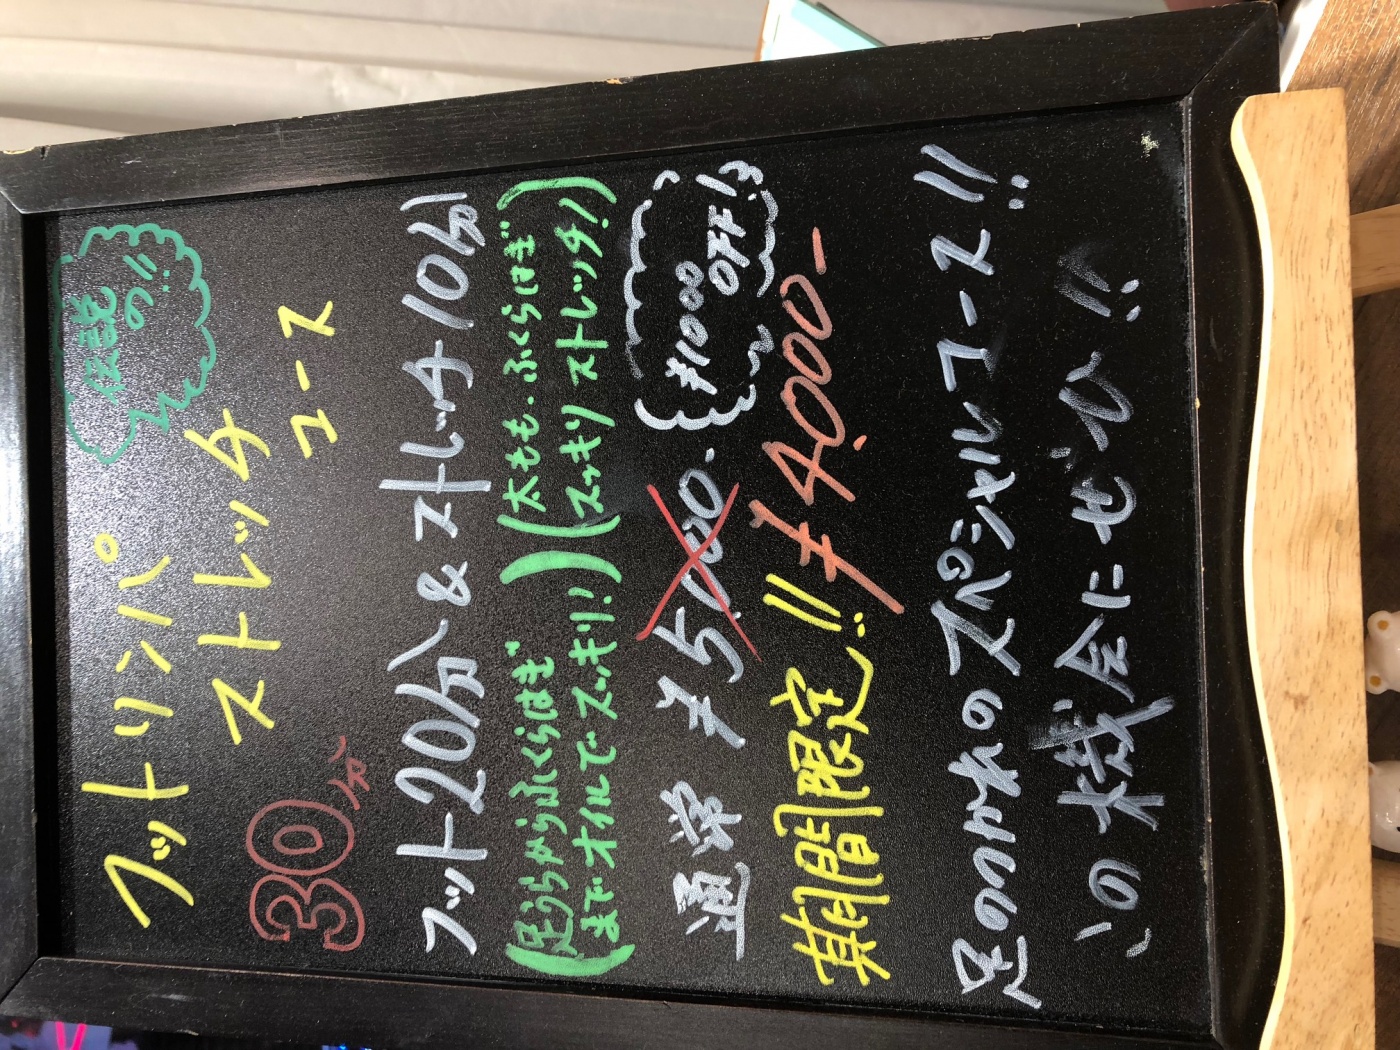 伝説
の!!
フットリンパ
ストレッチ
30分
コース
フット20分 & ストレッチ10分
(足うらからふくらはぎ
までオイルでスッキリ!)
(太もも・ふくらはぎ
スッキリストレッチ!)
通常 ¥5,000-
¥1000
OFF!
期間限定!! ¥4,000-
足のつかれのスペシャルコース!!
この機会にぜひ!!